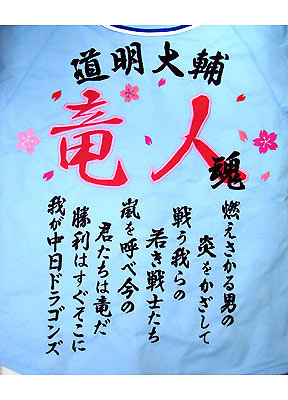 道明大輔
竜人
魂
燃えさかる男の
炎をかざして
戦う我らの
若き戦士たち
嵐を呼べ今の
君たちは竜だ
勝利はすぐそこに
我が中日ドラゴンズ